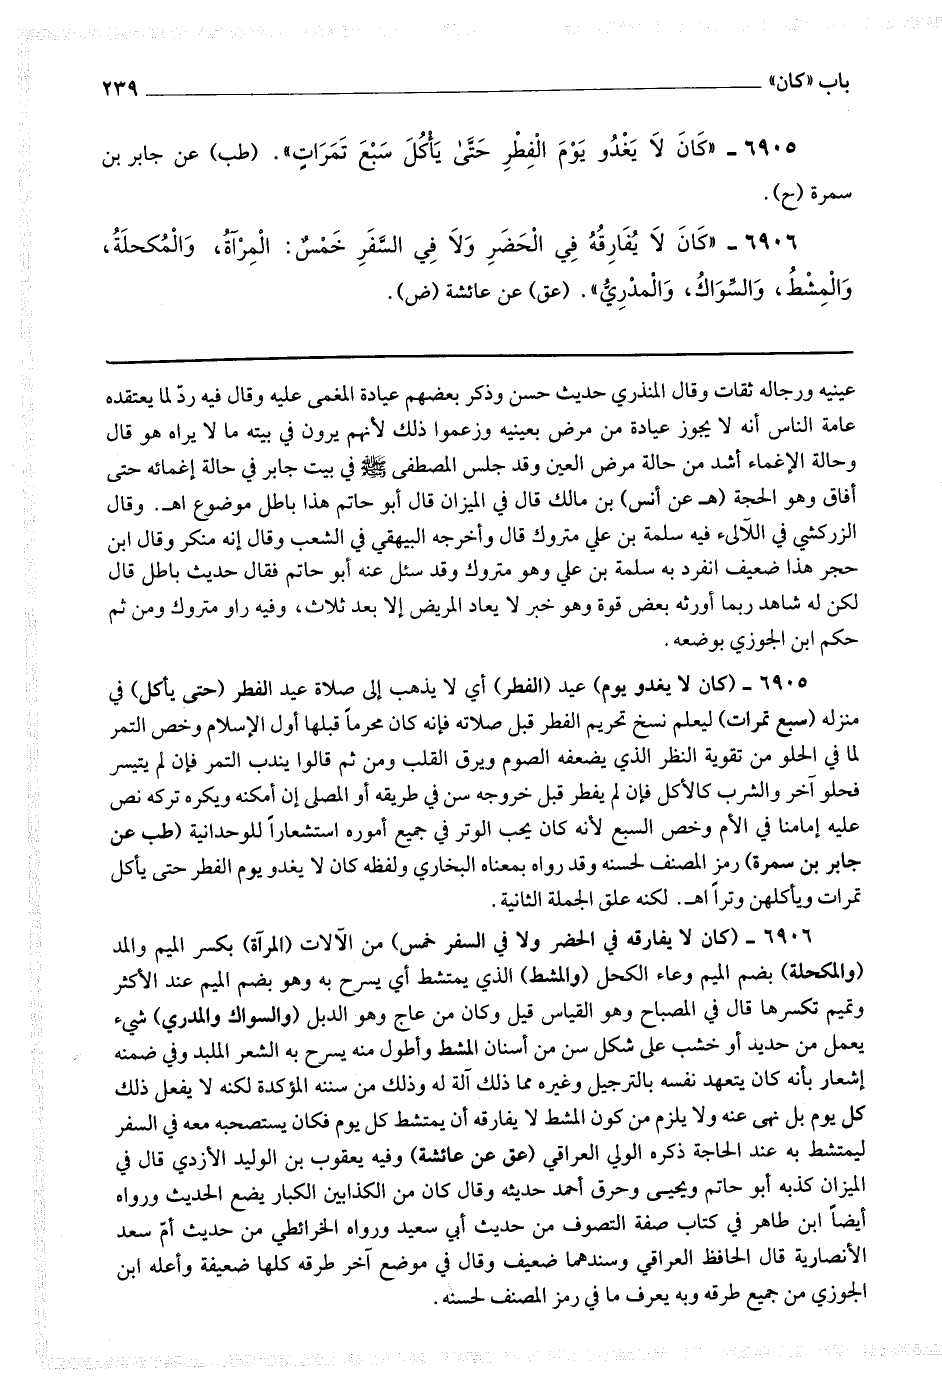 باب «كان» ٢٣٩
٦٩٠٥ ـ «كَانَ لَا يَغْدُو يَوْمَ الْفِطْرِ حَتَّىٰ يَأْكُلَ سَبْعَ تَمَرَاتٍ». (طب) عن جابر بن
سمرة (ح).
٦٩٠٦ ـ «كَانَ لَا يُفَارِقُهُ فِي الْحَضَرِ وَلَا فِي السَّفَرِ خَمْسٌ: الْمِرْآةُ، وَالْمُكحلَةُ،
وَالْمِشْطُ، وَالسِّوَاكُ، وَالْمدْرِيُّ». (عق) عن عائشة (ض).
عينيه ورجاله ثقات وقال المنذري حديث حسن وذكر بعضهم عيادة المغمى عليه وقال فيه ردّ لما يعتقده
عامة الناس أنه لا يجوز عيادة من مرض بعينيه وزعموا ذلك لأنهم يرون في بيته ما لا يراه هو قال
وحالة الإغماء أشد من حالة مرض العين وقد جلس المصطفى ﷺ في بيت جابر في حالة إغمائه حتى
أفاق وهو الحجة (هـ عن أنس) بن مالك قال في الميزان قال أبو حاتم هذا باطل موضوع اهـ. وقال
الزركشي في اللآلىء فيه سلمة بن علي متروك قال وأخرجه البيهقي في الشعب وقال إنه منكر وقال ابن
حجر هذا ضعيف انفرد به سلمة بن علي وهو متروك وقد سئل عنه أبو حاتم فقال حديث باطل قال
لكن له شاهد ربما أورثه بعض قوة وهو خبر لا يعاد المريض إلا بعد ثلاث، وفيه راو متروك ومن ثم
حكم ابن الجوزي بوضعه.
٦٩٠٥ ـ (كان لا يغدو يوم) عيد (الفطر) أي لا يذهب إلى صلاة عيد الفطر (حتى يأكل) في
منزله (سبع تمرات) ليعلم نسخ تحريم الفطر قبل صلاته فإنه كان محرماً قبلها أول الإسلام وخص التمر
لما في الحلو من تقوية النظر الذي يضعفه الصوم ويرق القلب ومن ثم قالوا يندب التمر فإن لم يتيسر
فحلو آخر والشرب كالأكل فإن لم يفطر قبل خروجه سن في طريقه أو المصلى إن أمكنه ويكره تركه نص
عليه إمامنا في الأم وخص السبع لأنه كان يحب الوتر في جميع أموره استشعاراً للوحدانية (طب عن
جابر بن سمرة) رمز المصنف لحسنه وقد رواه بمعناه البخاري ولفظه كان لا يغدو يوم الفطر حتى يأكل
تمرات ويأكلهن وتراً اهـ. لكنه علق الجملة الثانية.
٦٩٠٦ ـ (كان لا يفارقه في الحضر ولا في السفر خمس) من الآلات (المرآة) بكسر الميم والمد
(والمكحلة) بضم الميم وعاء الكحل (والمشط) الذي يمتشط أي يسرح به وهو بضم الميم عند الأكثر
وتميم تكسرها قال في المصباح وهو القياس قيل وكان من عاج وهو الدبل (والسواك والمدري) شيء
يعمل من حديد أو خشب على شكل سن من أسنان المشط وأطول منه يسرح به الشعر الملبد وفي ضمنه
إشعار بأنه كان يتعهد نفسه بالترجيل وغيره مما ذلك آلة له وذلك من سننه المؤكدة لكنه لا يفعل ذلك
كل يوم بل نهى عنه ولا يلزم من كون المشط لا يفارقه أن يمتشط كل يوم فكان يستصحبه معه في السفر
ليمتشط به عند الحاجة ذكره الولي العراقي (عق عن عائشة) وفيه يعقوب بن الوليد الأزدي قال في
الميزان كذبه أبو حاتم ويحيى وحرق أحمد حديثه وقال كان من الكذابين الكبار يضع الحديث ورواه
أيضاً ابن طاهر في كتاب صفة التصوف من حديث أبي سعيد ورواه الخرائطي من حديث أمّ سعد
الأنصارية قال الحافظ العراقي وسندهما ضعيف وقال في موضع آخر طرقه كلها ضعيفة وأعله ابن
الجوزي من جميع طرقه وبه يعرف ما في رمز المصنف لحسنه.